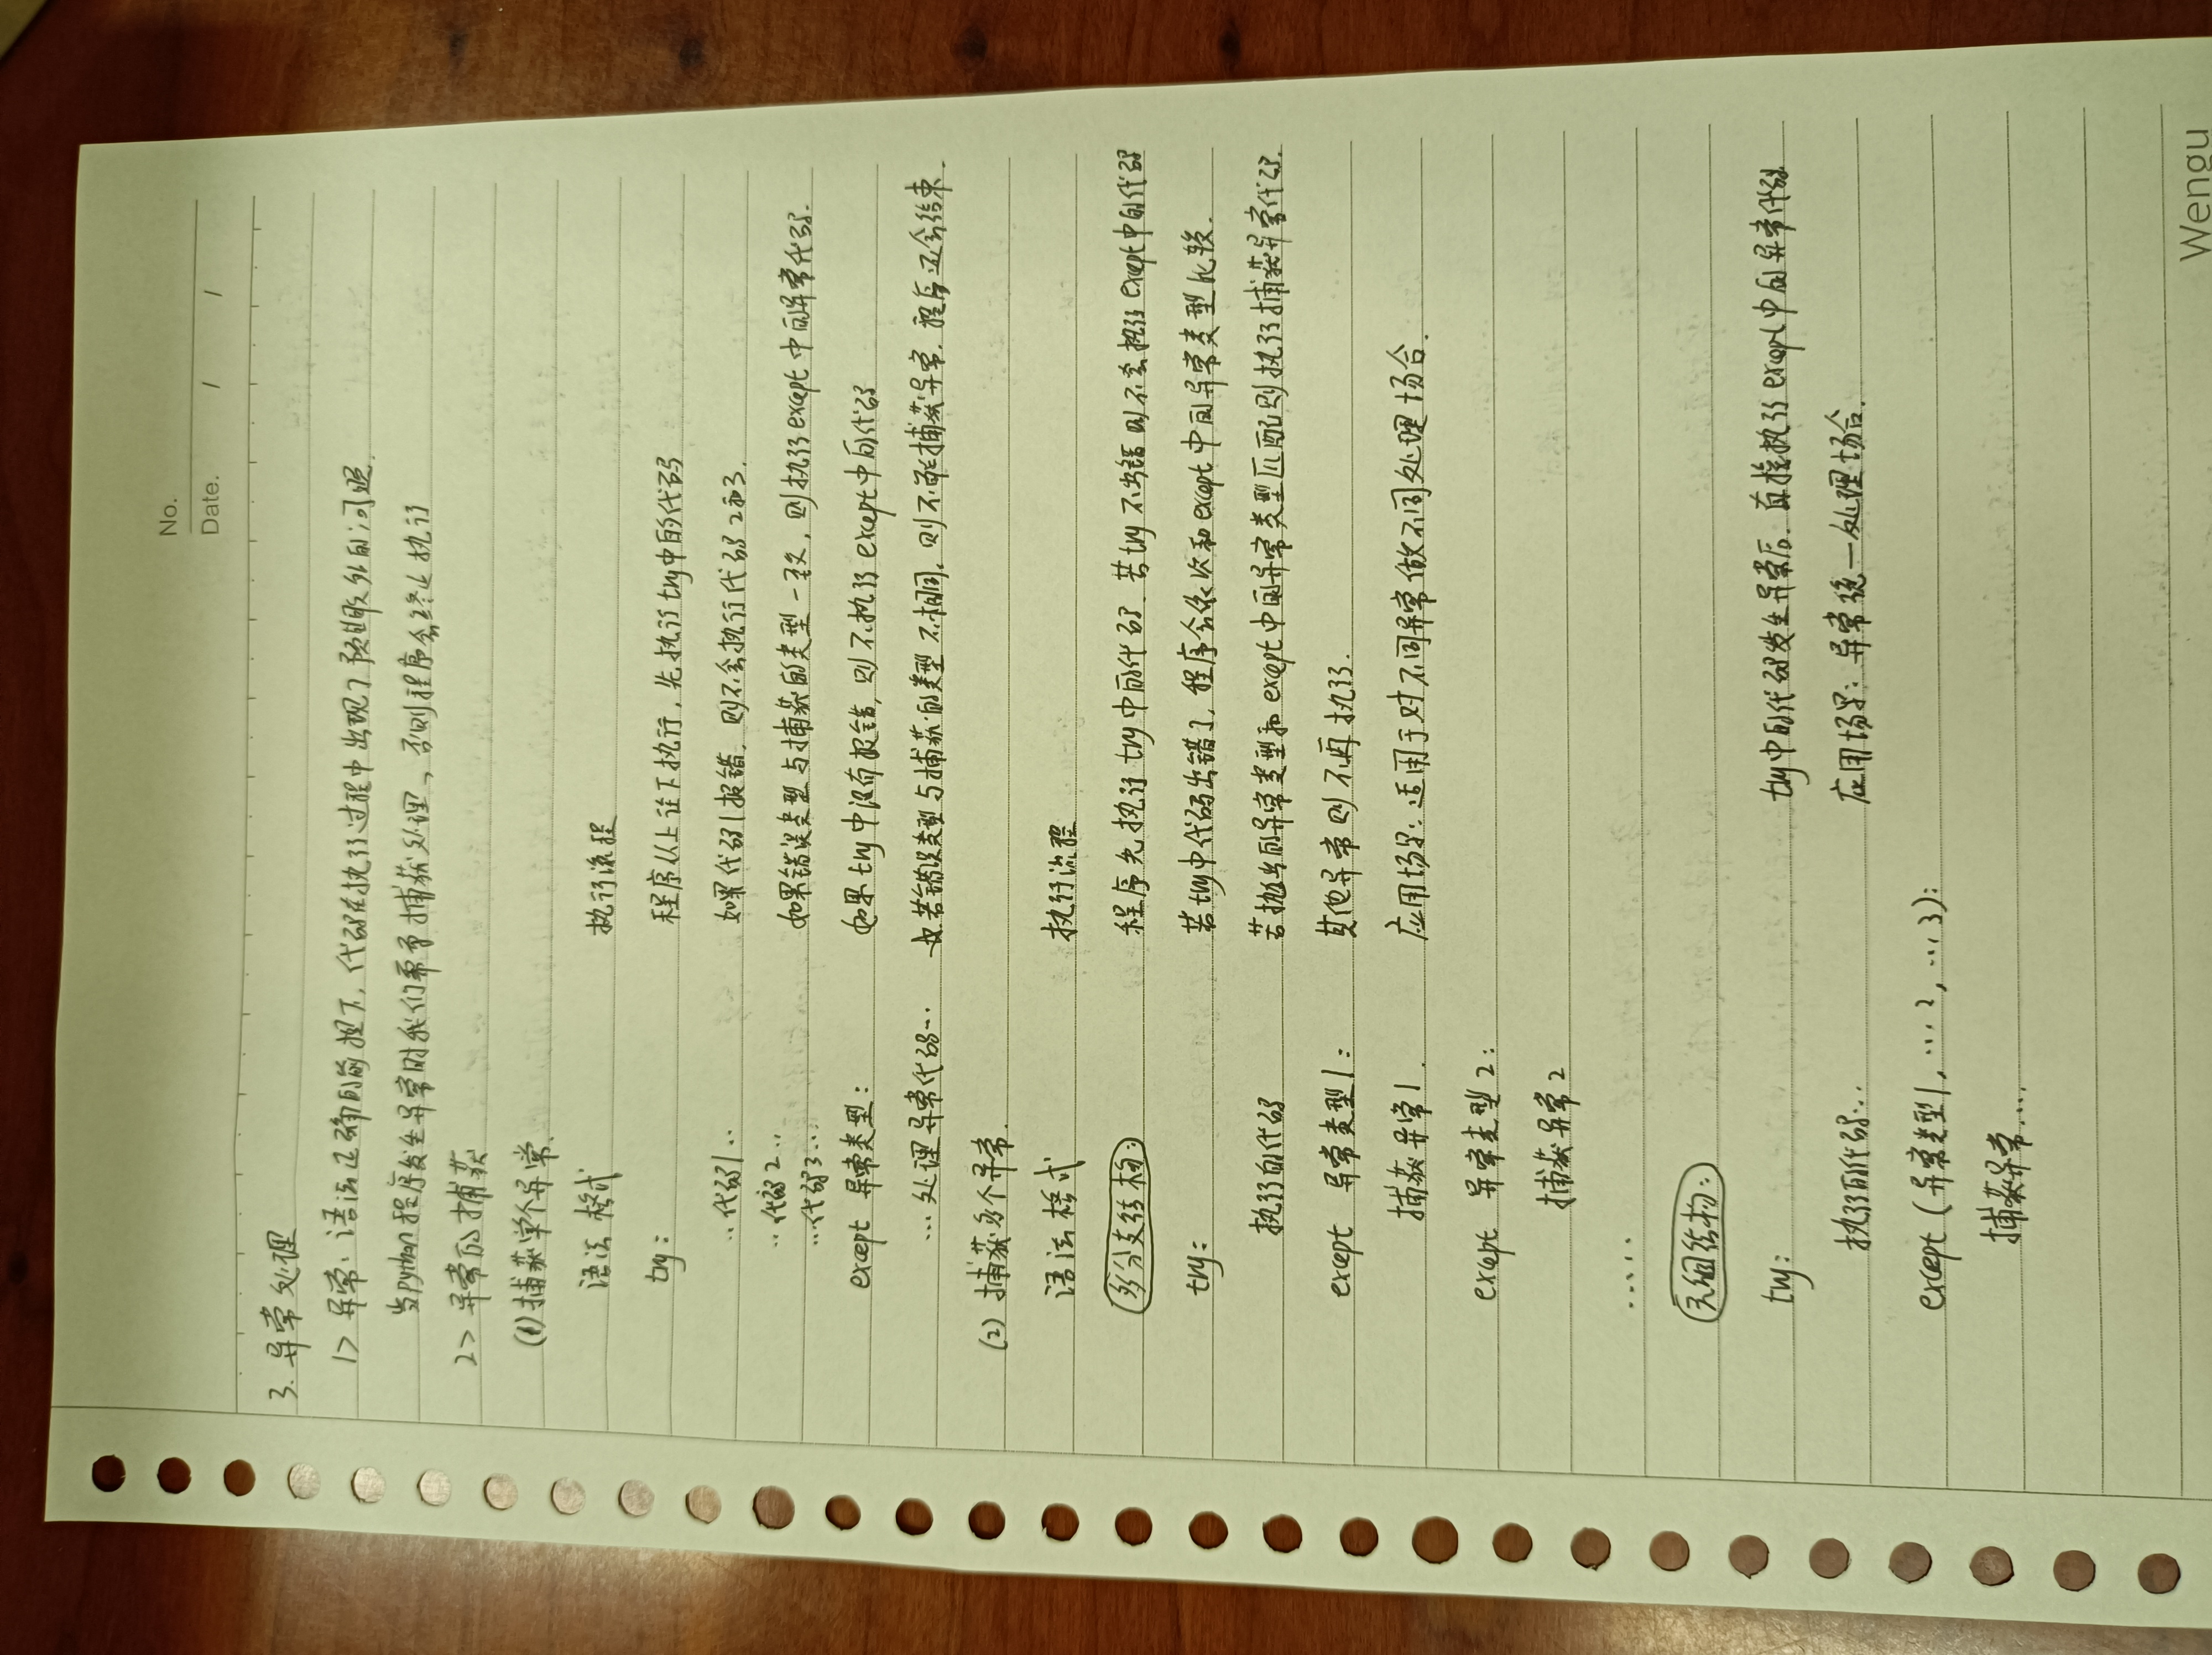 No.
Date. / /
3. 异常处理
1> 异常: 语法正确的前提下, 代码在执行过程中出现了预期外的问题.
当python程序发生异常时我们需要捕获处理、否则程序会终止执行
2> 异常的捕获
(1) 捕获单个异常.
语法格式 执行流程
try: 程序从上往下执行, 先执行try中的代码
..代码1.. 如果代码1报错, 则不会执行代码2和3.
..代码2..
...代码3... 如果错误类型与捕获的类型一致, 则执行except中的异常代码.
except 异常类型: 如果try中没有报错, 则不执行except中的代码
...处理异常代码... 若错误类型与捕获的类型不相同, 则不能捕获异常. 程序还会结束.
(2) 捕获多个异常.
语法格式 执行流程
多分支结构: 程序先执行try中的代码. 若try不出错则不会执行except中的代码
try: 若try中代码出错了, 程序会依次和except中的异常类型比较.
执行的代码 若抛出的异常类型和except中的异常类型匹配则执行捕获异常代码.
except 异常类型1: 其他异常则不再执行.
捕获异常1. 应用场景: 适用于对不同异常做不同处理场合.
except 异常类型2:
捕获异常2
.....
元组结构:
try: try中的代码发生异常后. 直接执行except中的异常代码
执行的代码... 应用场景: 异常统一处理场合.
except (异常类型1, ...2, ...3):
捕获异常....
Wengu